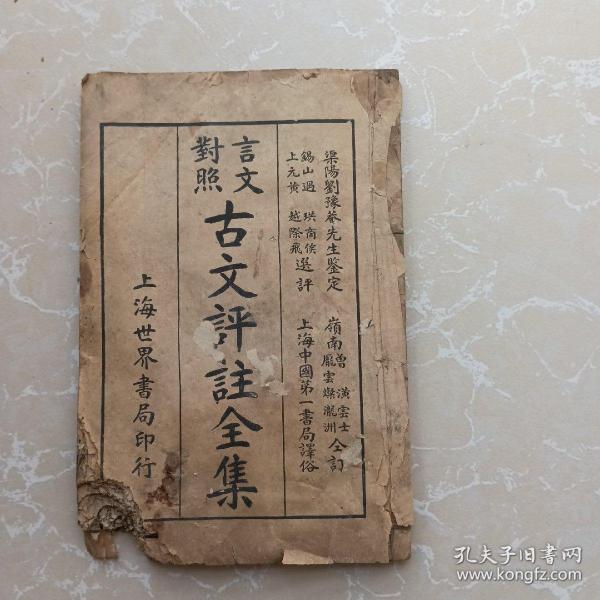 渠陽劉豫菴先生鑒定
嶺南
曾潢雲士
龐雲燦瀧洲
仝訂
錫山過珙商侯
上元黃越際飛
選評
上海中國第一書局譯俗
言文
對照
古文評註全集
上海世界書局印行
孔夫子旧书网
www.kongfz.com